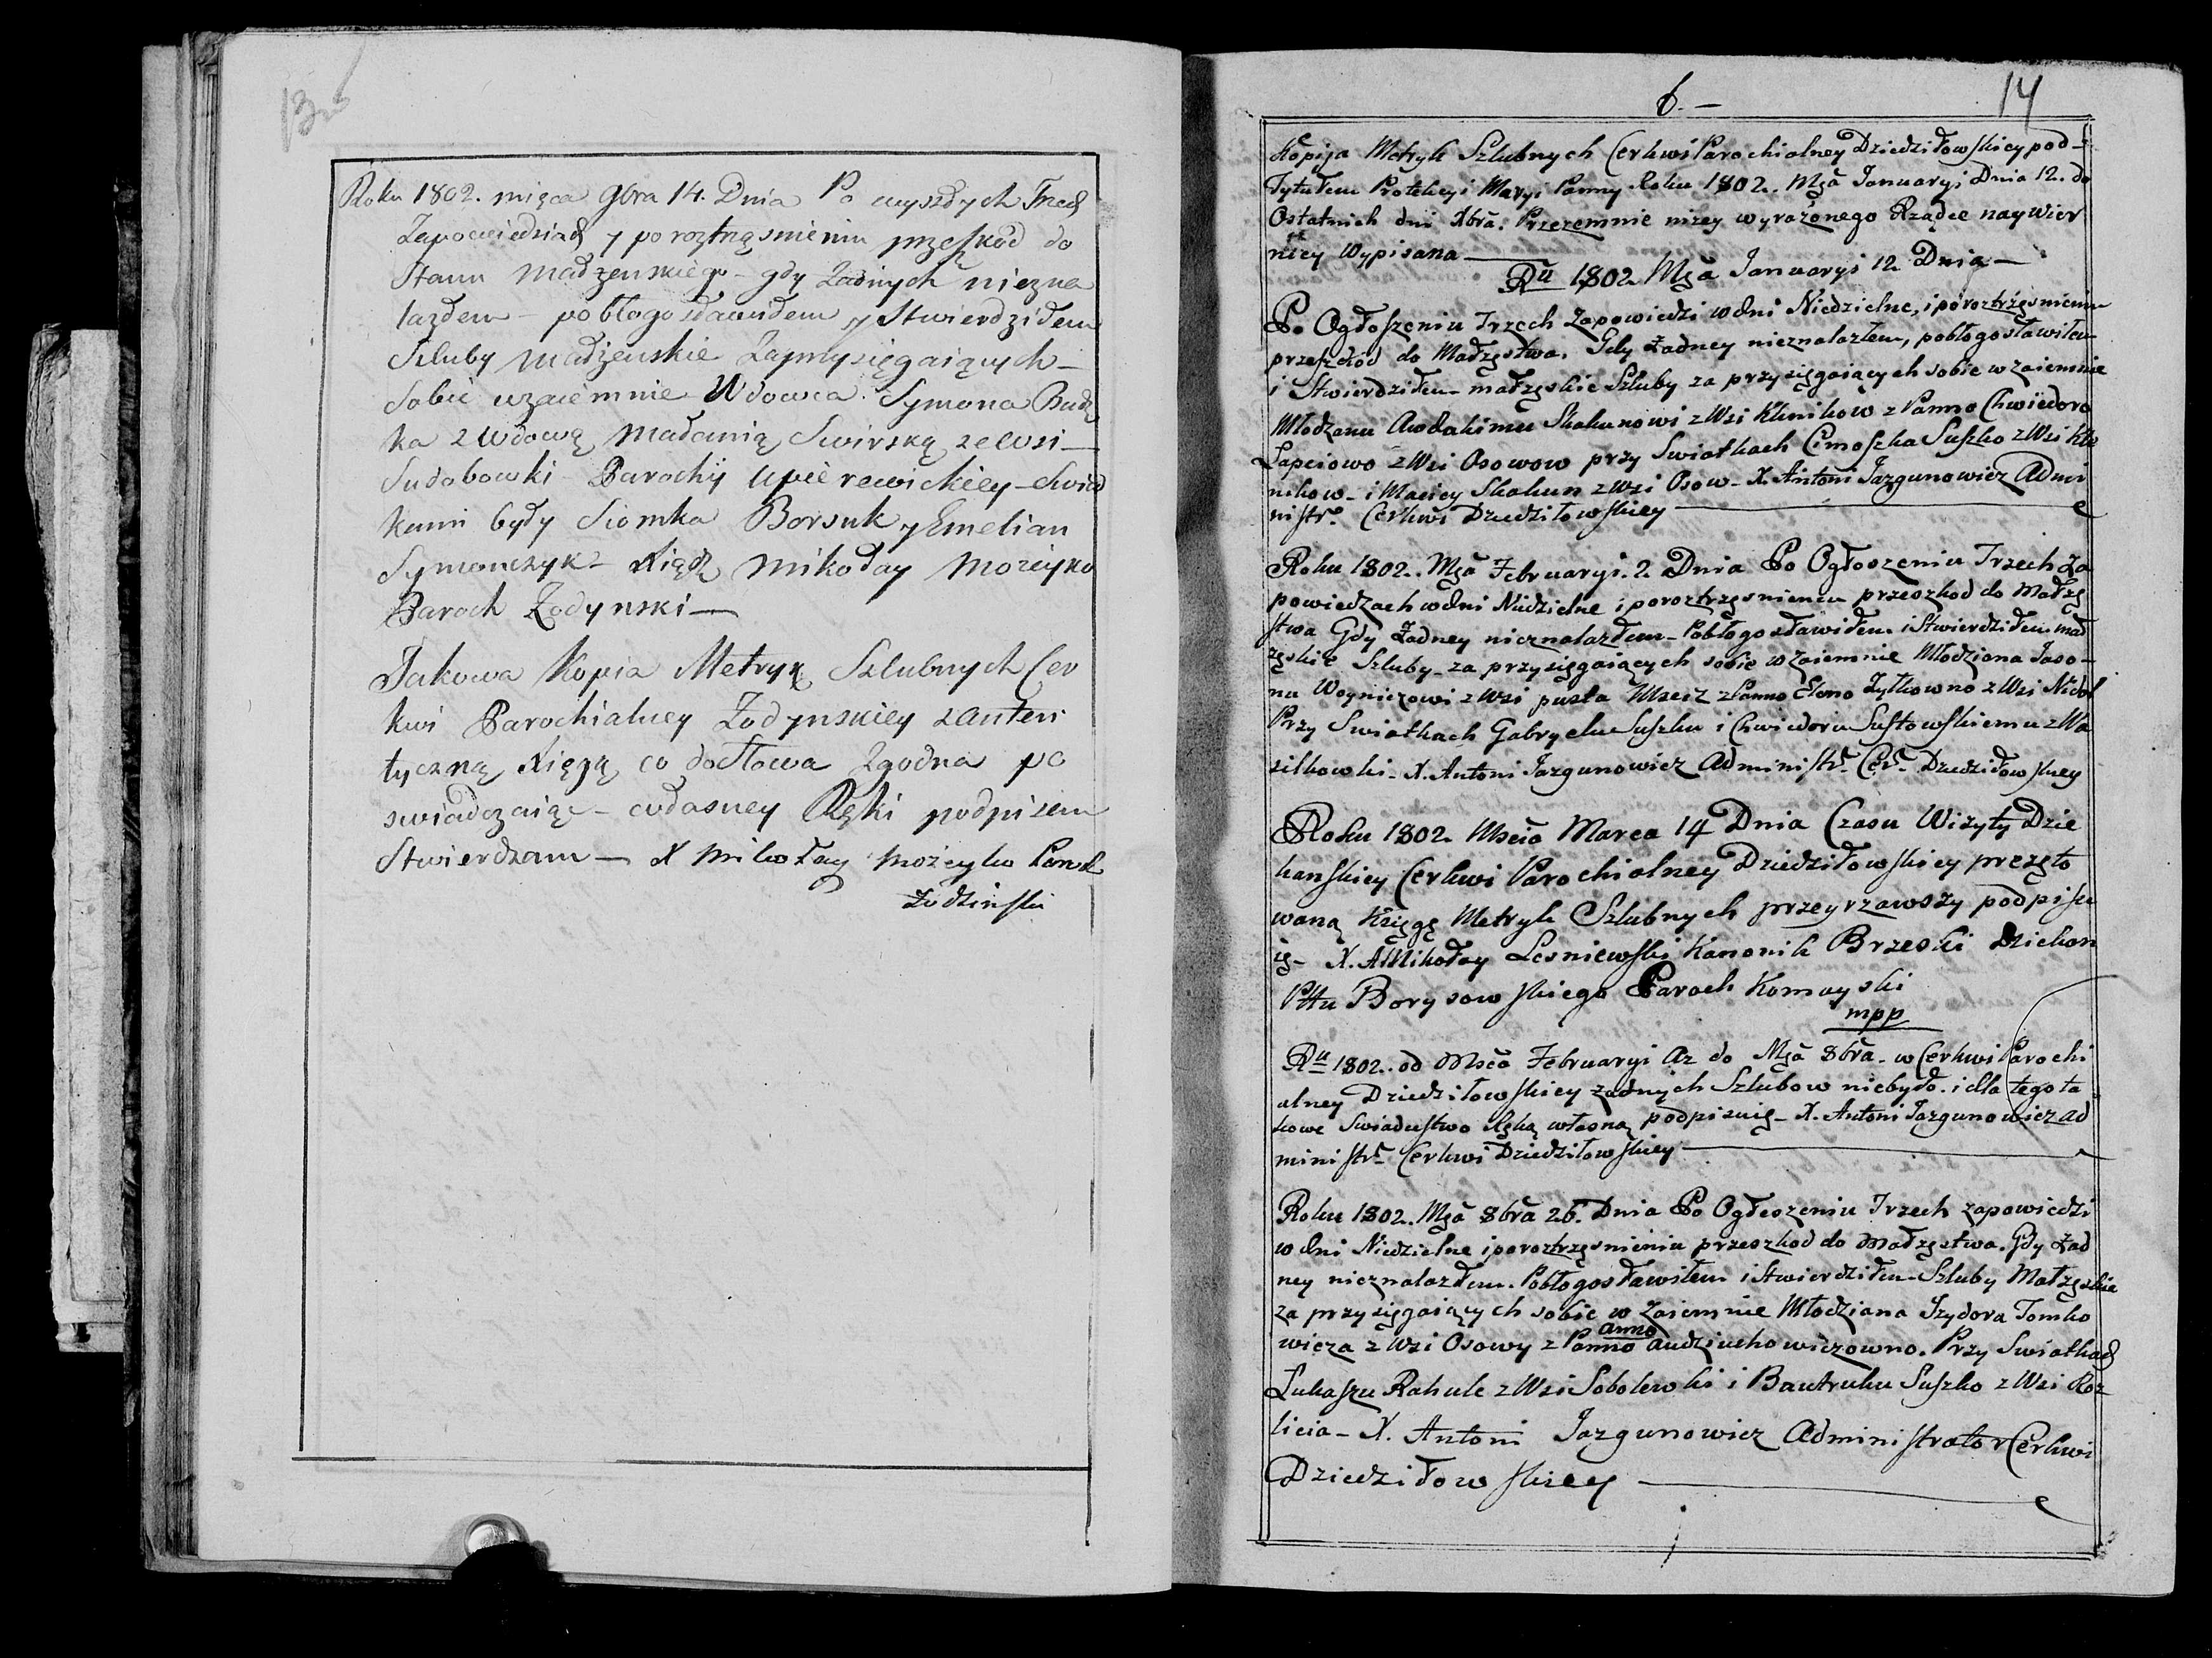 13
Roku 1802. mięca 9bra 14. Dnia Po wyszłych Trzech
Zapowiedziach y po roztrząsnieniu przeszkód do
Stanu Madżenskiego - gdy Zadnych niezna
lazłem - pobłogosławiłem y Stwierdziłem
Szluby Madżenskie Zaprzysięgaiących -
Sobie wzaiemnie Wdowca Symona Budz
ka z Wdową Madamią Swirską ze wsi -
Sudobowki Parochij Upierewickiey - Swiad
kami były Siomka Borsuk y Emelian
Symonczyk - Xiądz Mikołay Możeyko
Paroch Żodynski -
Jakowa Kopia Metryk Szlubnych Cer
kwi Parochialney Żodynskiey z auten
tyczną Xięgą co do słowa Zgodna po
swiadczaiąc - własney Ręki podpisem
Stwierdzam - X Mikołay Możeyko Paroch
Żodzinski
6. -
14
Kopija Metryk Szlubnych Cerkwi Parochialney Dziedziłowskiey pod -
Tytułem Protekcyi Maryi Panny Roku 1802. Mca Januaryi Dnia 12. do
Ostatnich dni Xbra. Przezemnie niżey wyrażonego Rządce naywier
niey Wypisana
Ru 1802 Mca Januaryi 12 Dnia -
Po Ogłoszeniu Trzech Zapowiedzi w dni Niedzielne, i po roztrzęsnieniu
przeszkod do Małżęstwa. Gdy Żadney nieznalazłem, pobłogosławiłem
i Stwierdziłem małżęskie Szluby za przysięgaiących sobie wzaiemnie
Młodzanu Awdakimu Skakunowi z Wsi Klenikow z Panno Chwiedoro
Łapciowo z Wsi Osowow przy Swiatkach Cimoszka Suszko z Wsi Kle
nikow - i Maciey Skakun z Wsi Osow - X. Antoni Jazgunowicz Admi
nistr. Cerkwi Dziedziłowskiey
Roku 1802. Mca Februaryi. 2. Dnia Po Ogłoszeniu Trzech Za
powiedzach w dni Niedzielne i po roztrzęsnieniu przeszkod do Małżę
stwa Gdy Żadney nieznalazłem - Pobłogosławiłem i Stwierdziłem mał
żęskie Szluby - za przysięgaiących sobie wzaiemnie Młodziana Jaso -
na Woyniczowi z Wsi pusta Mscisz z Panno Eleno Żyłkowno z Wsi Nidal
Przy Swiatkach Gabryelu Suszku i Chwiedoru Sustowskiemu z Wa
silkowki - X. Antoni Jazgunowicz Administr. Cer. Dziedziłowskiey
Roku 1802 Msca Marca 14 Dnia Czasu Wizyty Dzie
kanskiey Cerkwi Parochialney Dziedziłowskiey prezęto
waną Księgę Metryk Szlubnych przeyrzawszy podpisu
ię - X. Mikołay Lesniewski Kanonik Brzeski Dziekan
Pttu Borysowskiego Paroch Komayski
mpp
Ru 1802. od Msca Februaryi Az do Mca 8bra - w Cerkwi Parochi
alney Dziedziłowskiey żadnych Szlubow niebyło. i dla tego ta
kowe Swiadustwo Ręką własną podpisuię - X. Antoni Jazgunowicz Ad
ministr. Cerkwi Dziedziłowskiey
Roku 1802. Mca 8bra 26. Dnia Po Ogłoszeniu Trzech zapowiedzi
w dni Niedzielne i po roztrzęsnieniu przeszkod do Małżęstwa. Gdy Żad
ney nieznalazłem. Pobłogosławiłem i Stwierdziłem Szluby Małżęskie
za przysięgaiących sobie wzaiemnie Młodziana Jzydora Tomko
anno
wicza z Wsi Osowy z Panno Audziuchowiczowno. Przy Swiatkach
Łukaszu Rahule z Wsi Sobolewki i Bautruku Suszko z Wsi Roz
licia - X. Antoni Jazgunowicz Administrator Cerkwi
Dziedziłowskiey